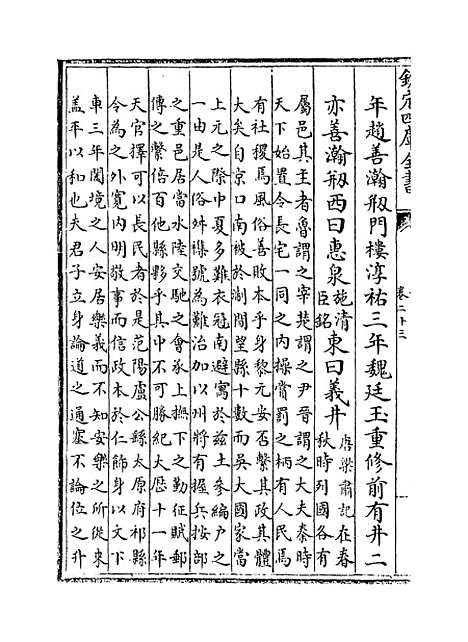 欽定四庫全書
卷二十三
年趙善瀚剏門樓淳祐三年魏廷玉重修前有井二
亦善瀚剏西曰惠泉施清臣銘東曰義井唐梁肅記在春秋時列國各有
屬邑其主者魯謂之宰楚謂之尹晉謂之大夫秦時
天下始置令長宅一同之内操賞罰之柄有人民焉
有社稷焉風俗善敗本乎身黎元安否繫其政其體
大矣自京口南被於淛閩望縣十數而吳大國家當
上元之際中夏多難衣冠南避寓於兹土參編戶之
一由是人俗舛襍號為難治加以州將有握兵按部
之重邑居當水陸交馳之會承上撫下之勤征賦郵
傳之繁倍百他縣夥乎其中不可勝紀大厯十一年
天官擇可以長民者於是范陽盧公繇太原府祁縣
令為之外寛内明敬事而信政本於仁飾身以文下
車三年闔境之人安居樂義而不知安樂之所從來
盖平以和也夫君子立身論道之通塞不論位之升